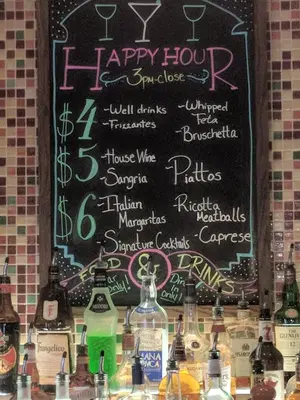 HAPPY HOUR
3pm-close
$4 -Well drinks -Whipped
-Frizzantes Feta
-Bruschetta
$5 -House Wine -Piattos
-Sangria
$6 -Italian -Ricotta
Margaritas Meatballs
-Signature Cocktails -Caprese
FOOD & DRINKS
only!
only!